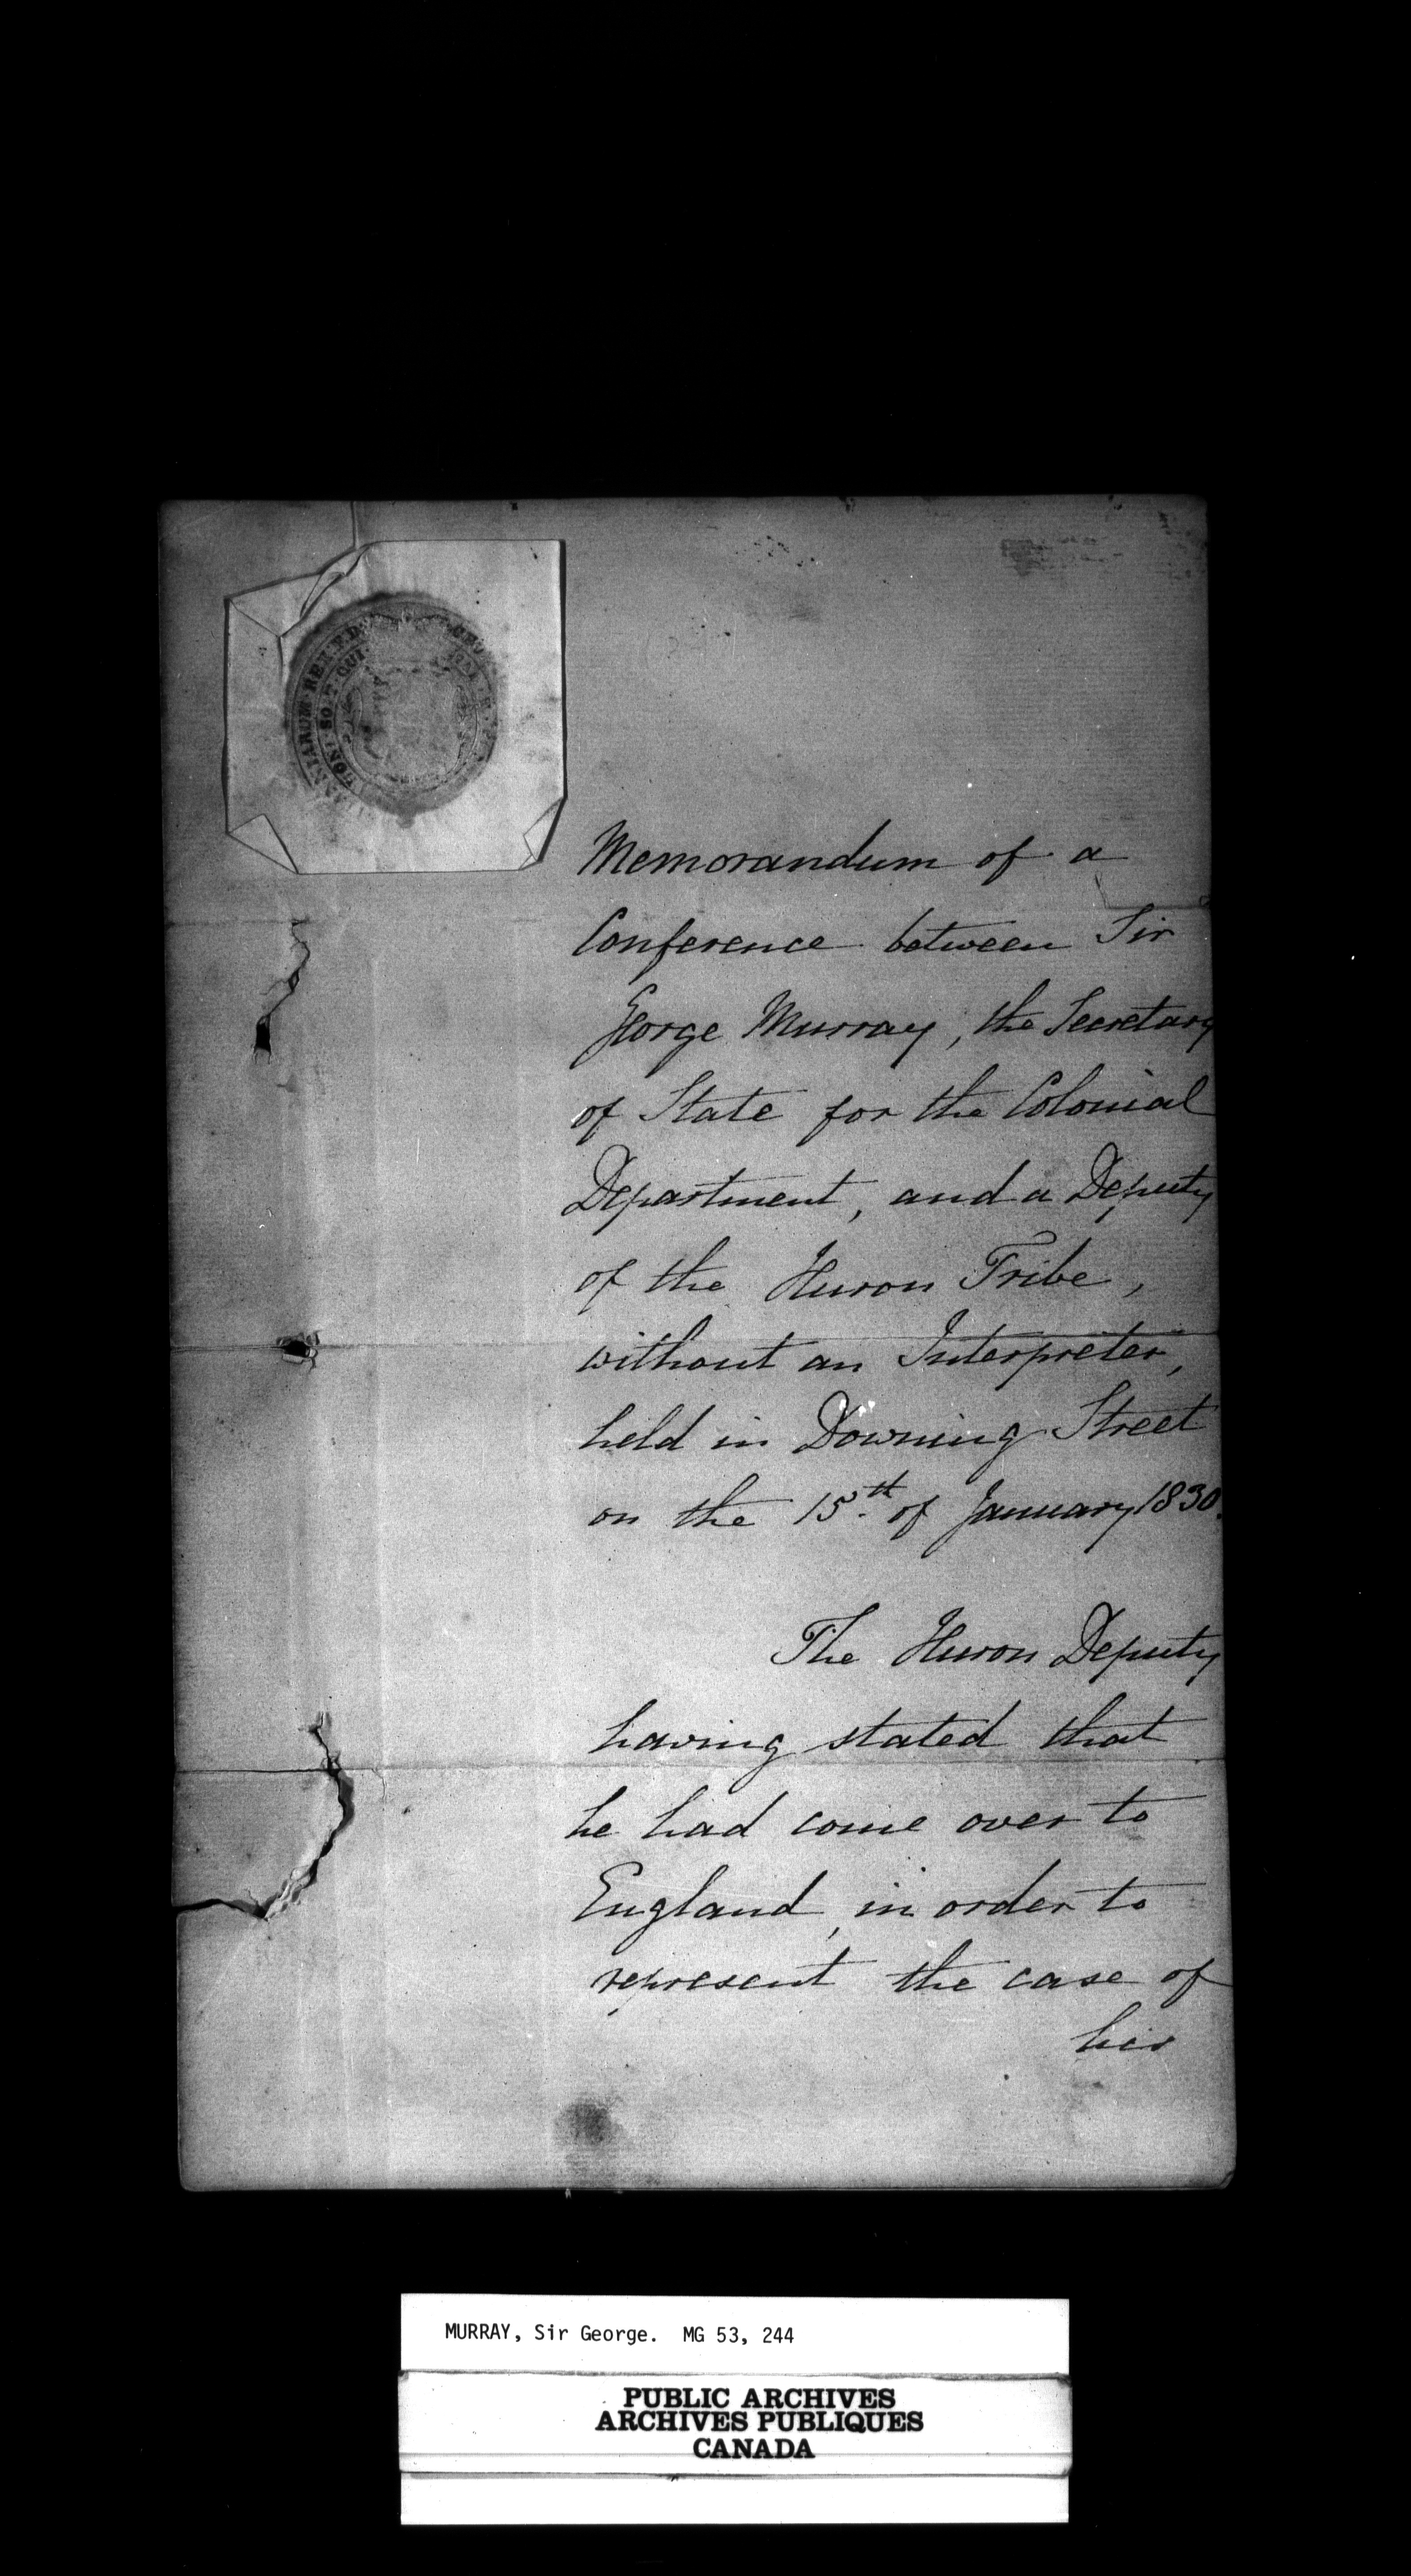 HONI SOIT QUI
Memorandum of a
Conference between Sir
George Murray, the Secretary
of State for the Colonial
Department, and a Deputy
of the Huron Tribe,
without an Interpreter,
held in Downing Street
on the 15th of January 1830.
The Huron Deputy
having stated that
he had come over to
England, in order to
represent the case of
his
MURRAY, Sir George. MG 53, 244
PUBLIC ARCHIVES
ARCHIVES PUBLIQUES
CANADA